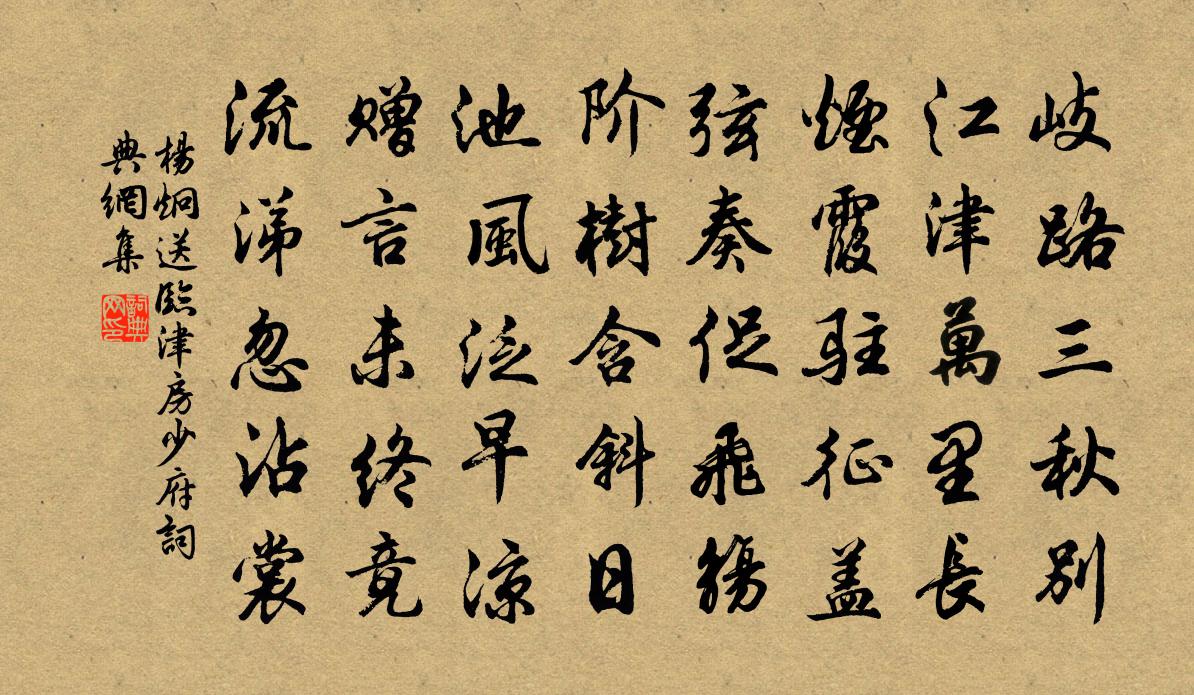 岐路三秋别
江津萬里長
煙霞駐征盖
弦奏促飛觴
阶樹含斜日
池風泛早凉
赠言未終竟
流涕忽沾裳
楊炯送臨津房少府詞
典網集
詞典
网印